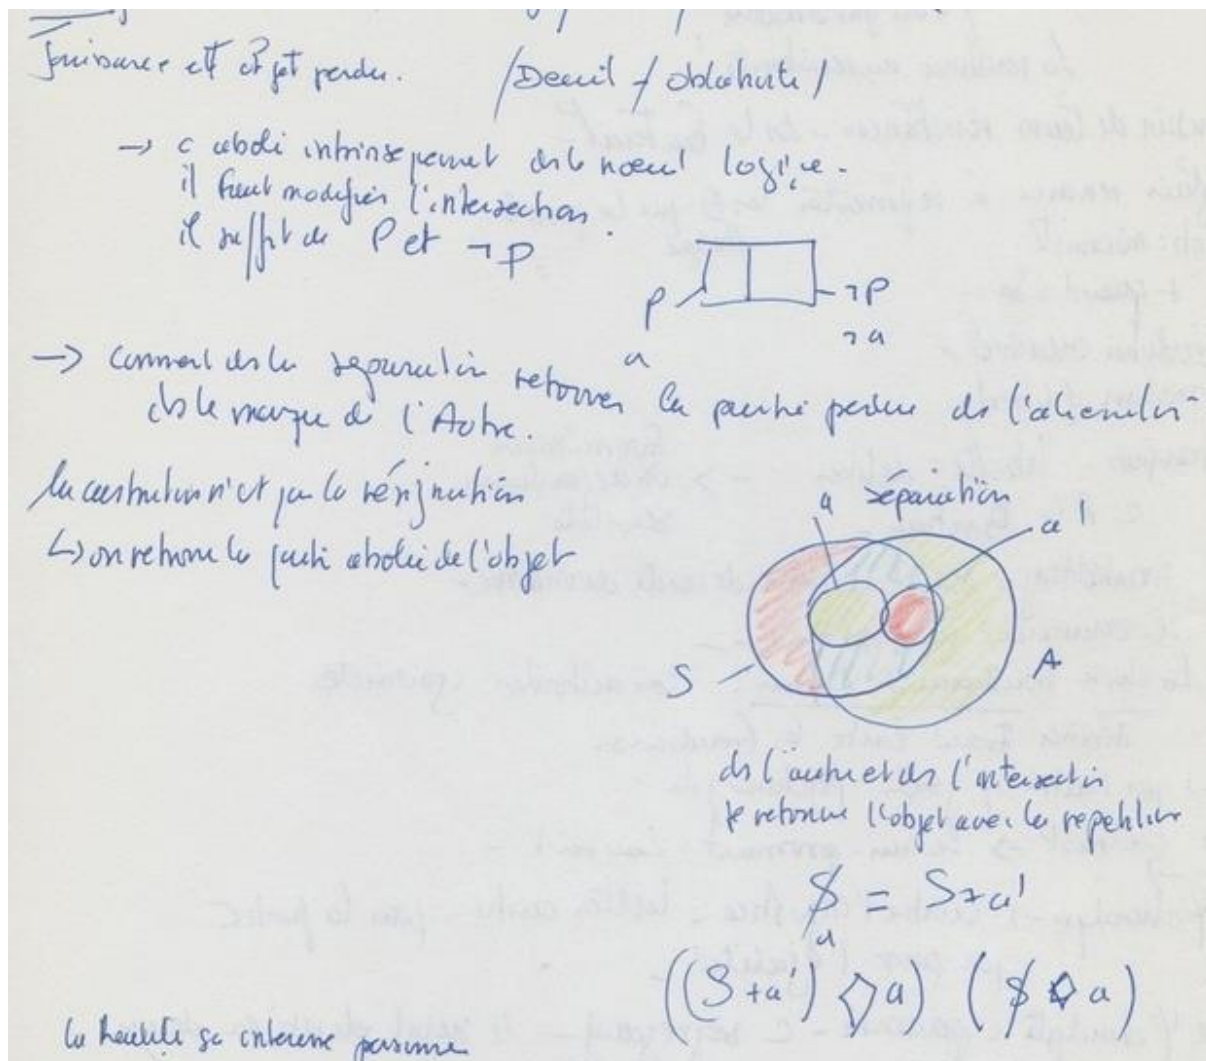 Jouissance et objet perdu. /Deuil / oblativité/
→ c aboli intrinsequement ds le nœud logique.
il faut modifier l'intersection.
il suffit de P et ¬P
P ¬P
a ¬a
→ comment ds la séparation retrouver la partie perdue de l'aliénation
ds le manque de l'Autre.
la castration n'est pas la résignation
↳ on retrouve la partie abolie de l'objet
a séparation
a'
S A
ds l'autre et ds l'intersection
je retrouve l'objet avec la repetition
$ = S a'
a
((S + a') ◇ a) ($ ◇ a)
la ça interesse personne